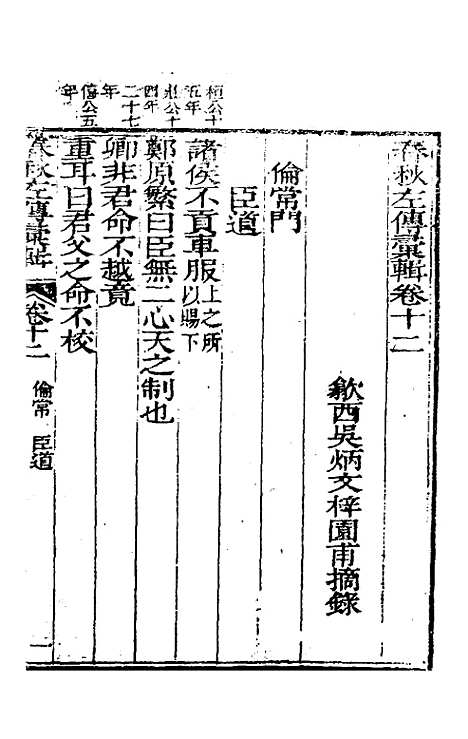 春秋左傳彙輯卷十二
歙西吳炳文梓園甫摘錄
倫常門
臣道
諸侯不貢車服上之所以賜下
鄭原繁曰臣無二心天之制也
卿非君命不越竟
重耳曰君父之命不校
桓公十五年
莊公十四年
二十七年
僖公五年
春秋左傳彙輯 卷十二 倫常 臣道 一